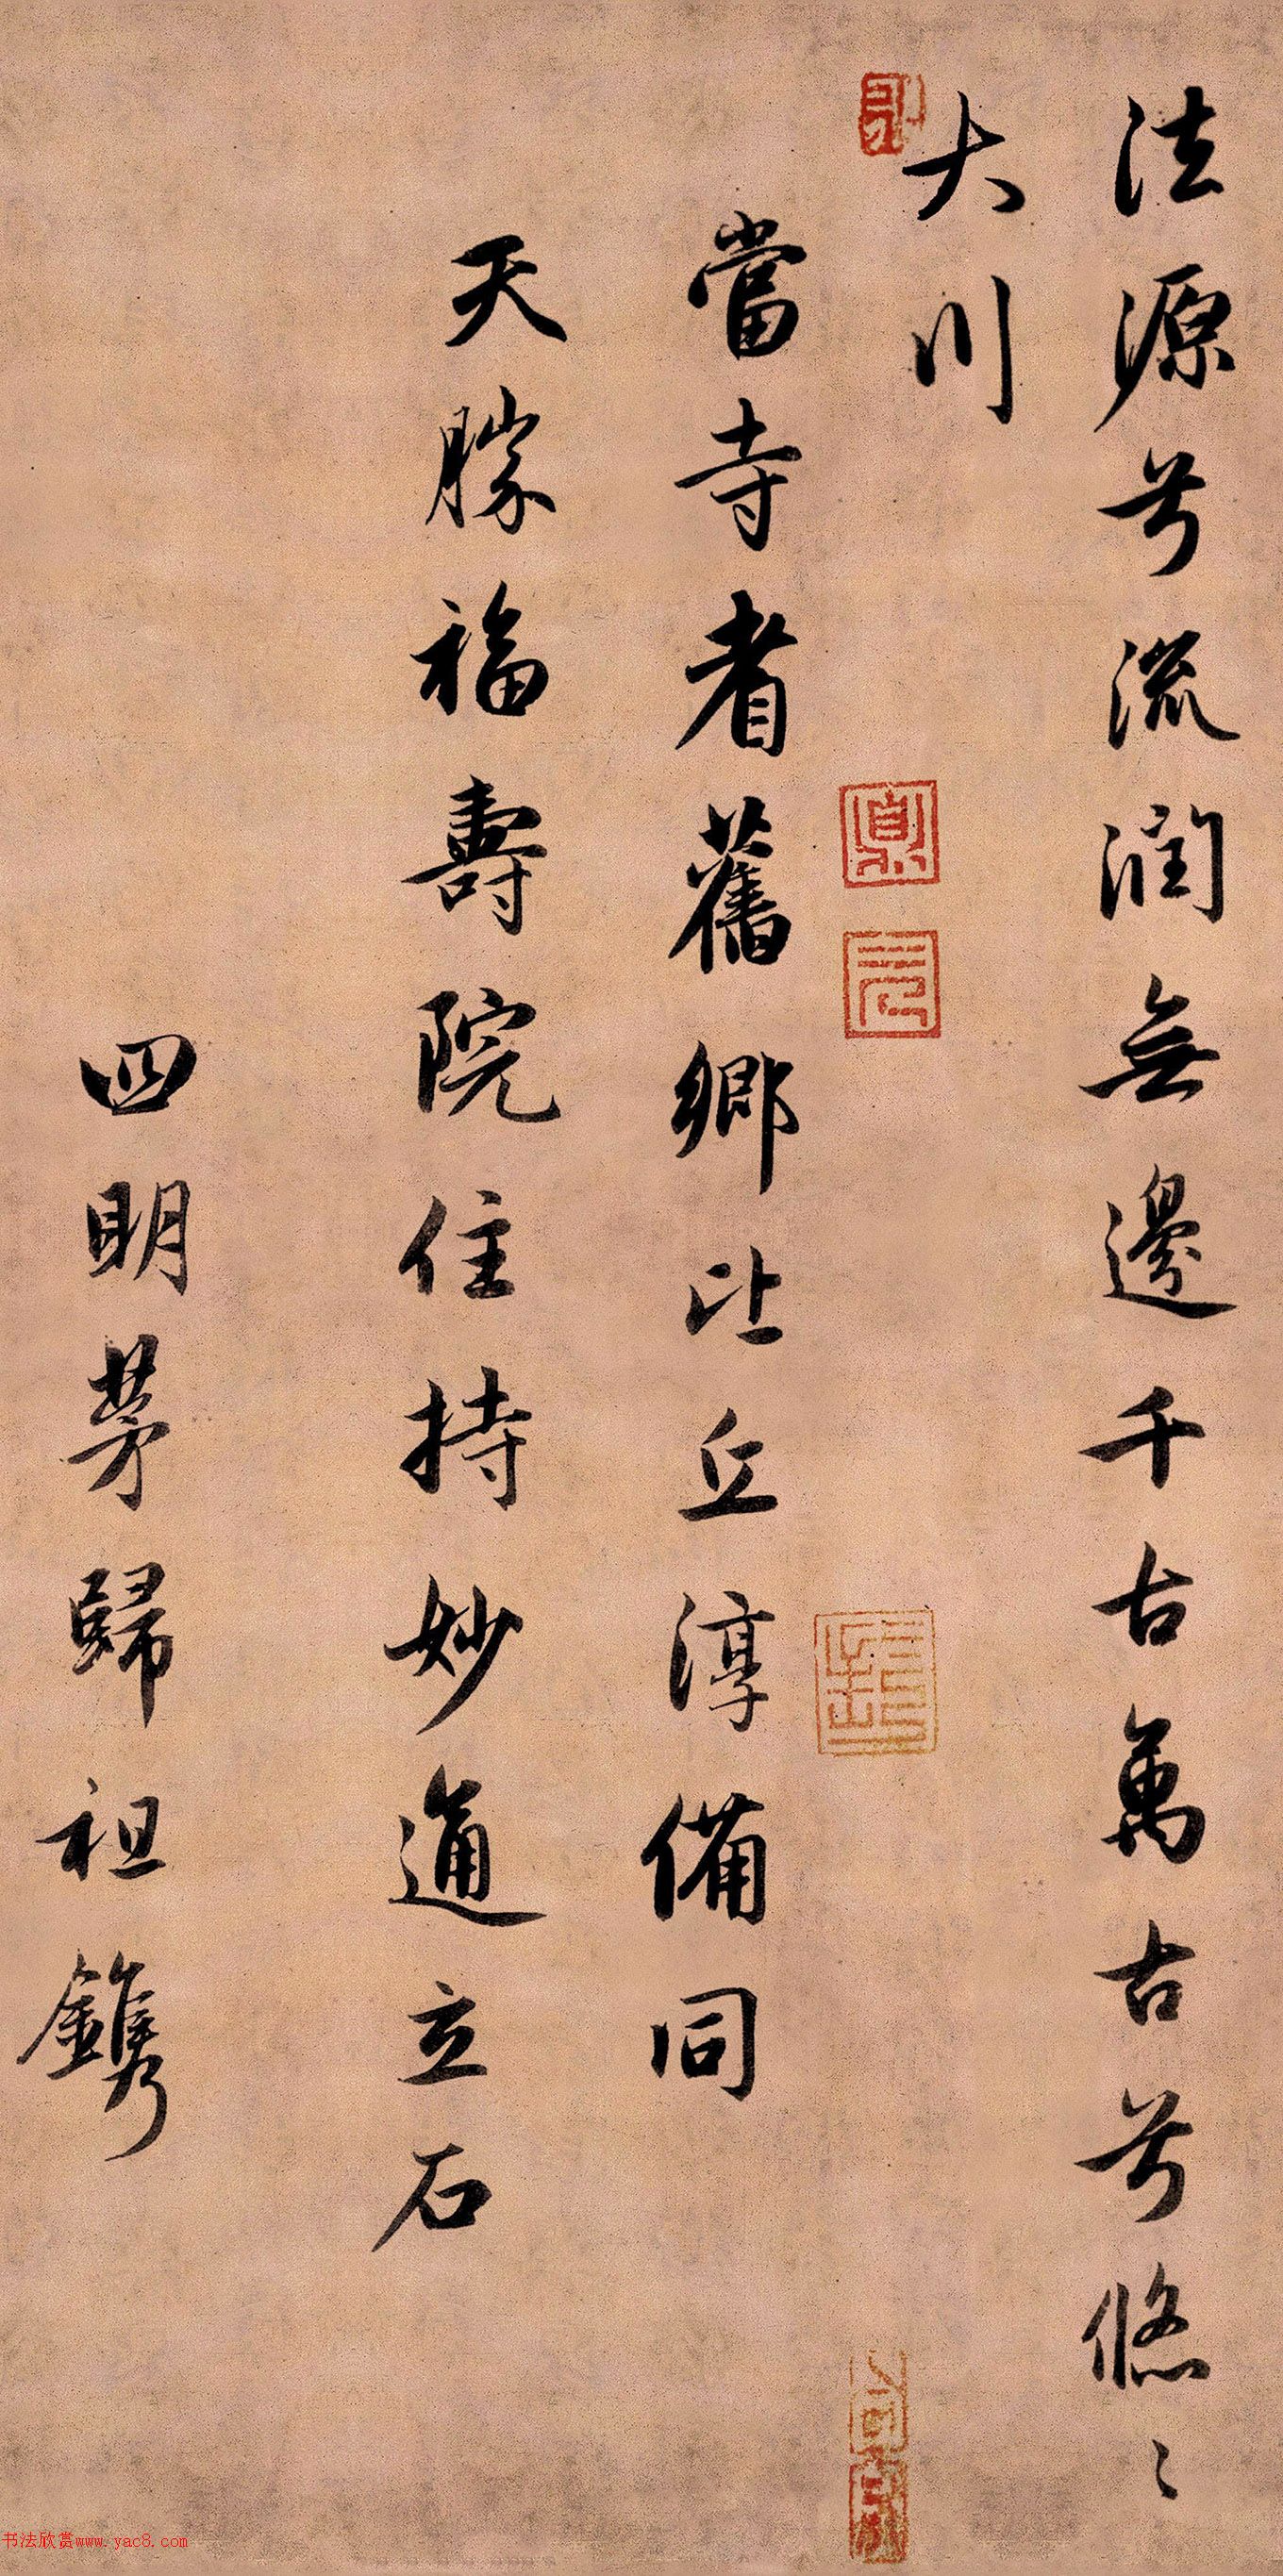 法源兮流潤無邊千古萬古兮悠〻
大川
當寺耆舊鄉比丘淳備同
天勝福壽院住持妙通立石
四明茅歸祖鐫
书法欣赏www.yac8.com